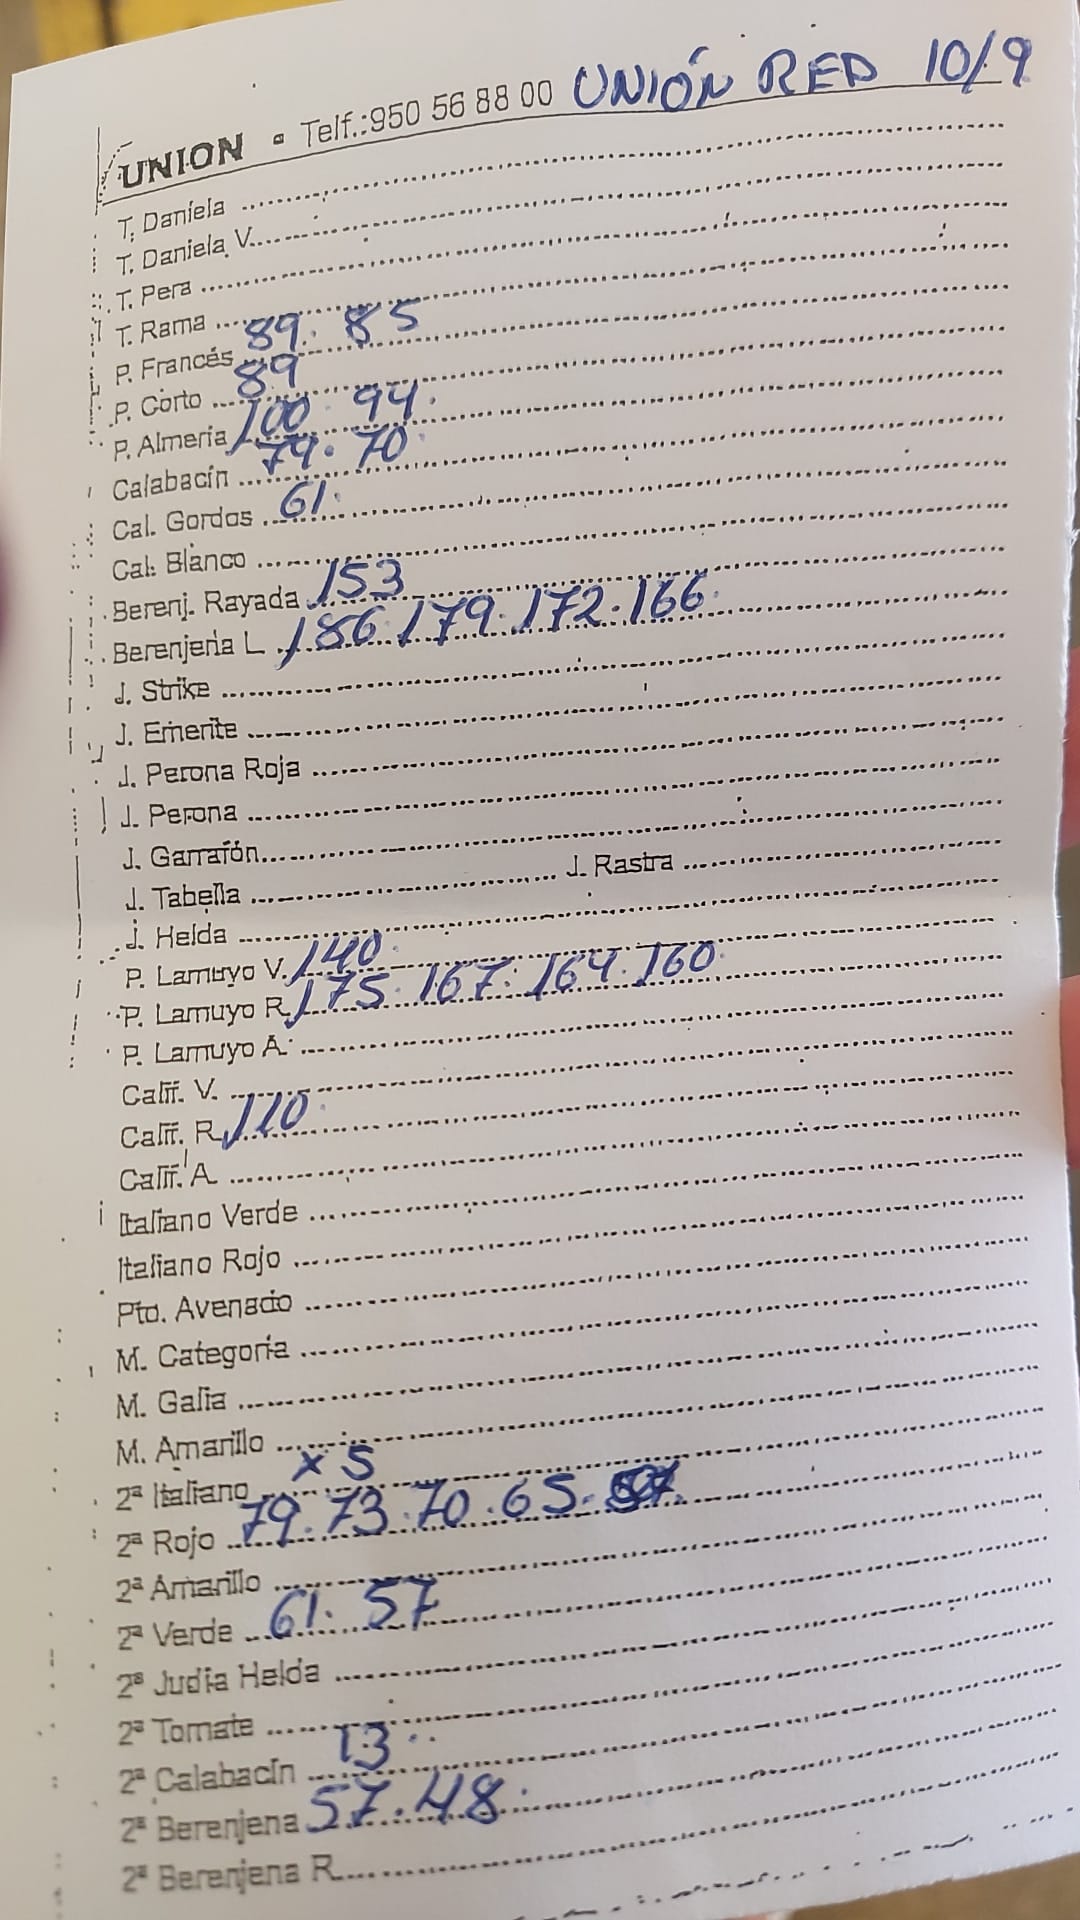 UNION - Telf.:950 56 88 00 UNIÓN RED 10/9
T. Daniela
T. Daniela V.
T. Pera
T. Rama
P. Francés 89. 85
P. Corto 89
P. Almería 100 94.
Calabacín 79. 70
Cal. Gordos 61.
Cal. Blanco
Berenj. Rayada 153
Berenjena L 186. 179. 172. 166.
J. Strike
J. Emerite
J. Perona Roja
J. Perona
J. Garrafón
J. Tabella J. Rastra
J. Helda
P. Lamuyo V. 140.
P. Lamuyo R. 175. 167. 164. 160.
P. Lamuyo A.
Calif. V.
Calif. R. 110.
Calif. A.
Italiano Verde
Italiano Rojo
Pto. Avenado
M. Categoría
M. Galia
M. Amarillo
2ª Italiano x 5
2ª Rojo 79. 73. 70. 65.
2ª Amarillo
2ª Verde 61. 57
2ª Judía Helda
2ª Tomate
2ª Calabacín 13
2ª Berenjena 57. 48.
2ª Berenjena R.